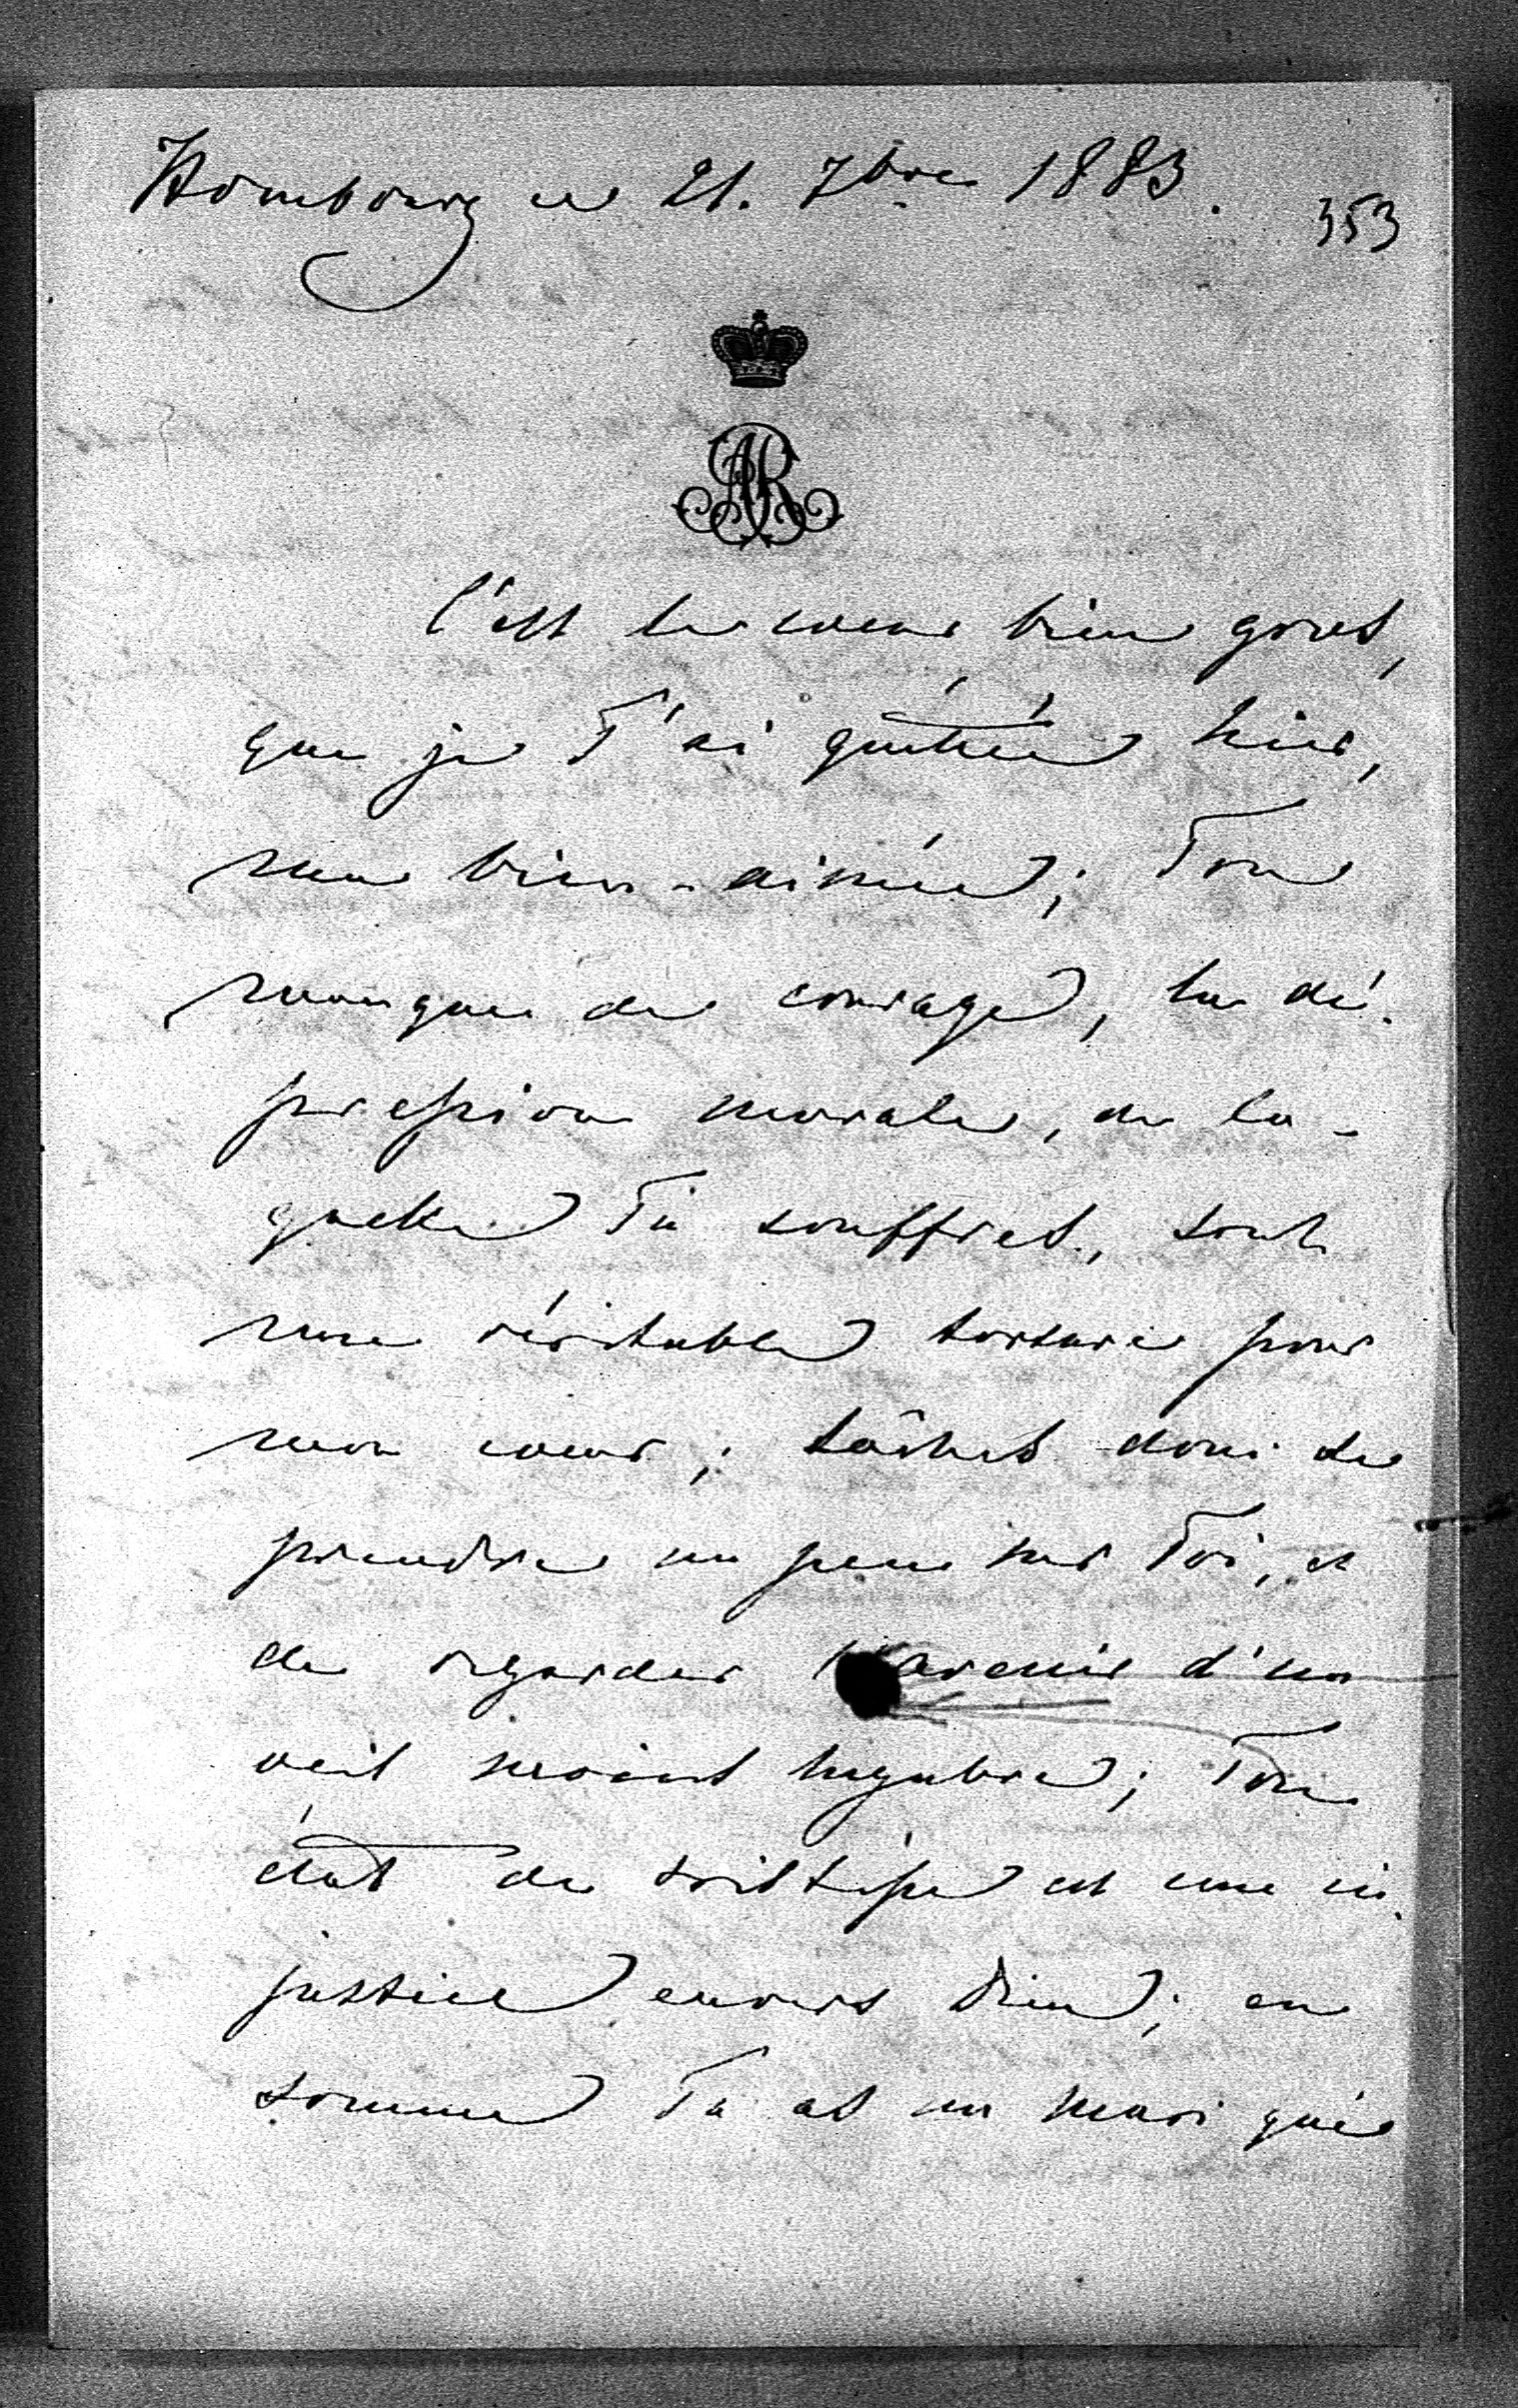 Hombourg ce 21. 7bre 1883.
353
AR
C'est le coeur bien gros,
que je T'ai quittée hier,
ma bien-aimée; Ton
manque de courage, la dé-
pression morale, de la-
quelle Tu souffres, sont
une véritable torture pour
mon coeur; tâches donc de
prendre un peu sur Toi, et
de regarder l'avenir d'un
oeil moins lugubre; Ton
état de tristesse est une in-
justice envers Dieu; en
somme Tu as un mari qui